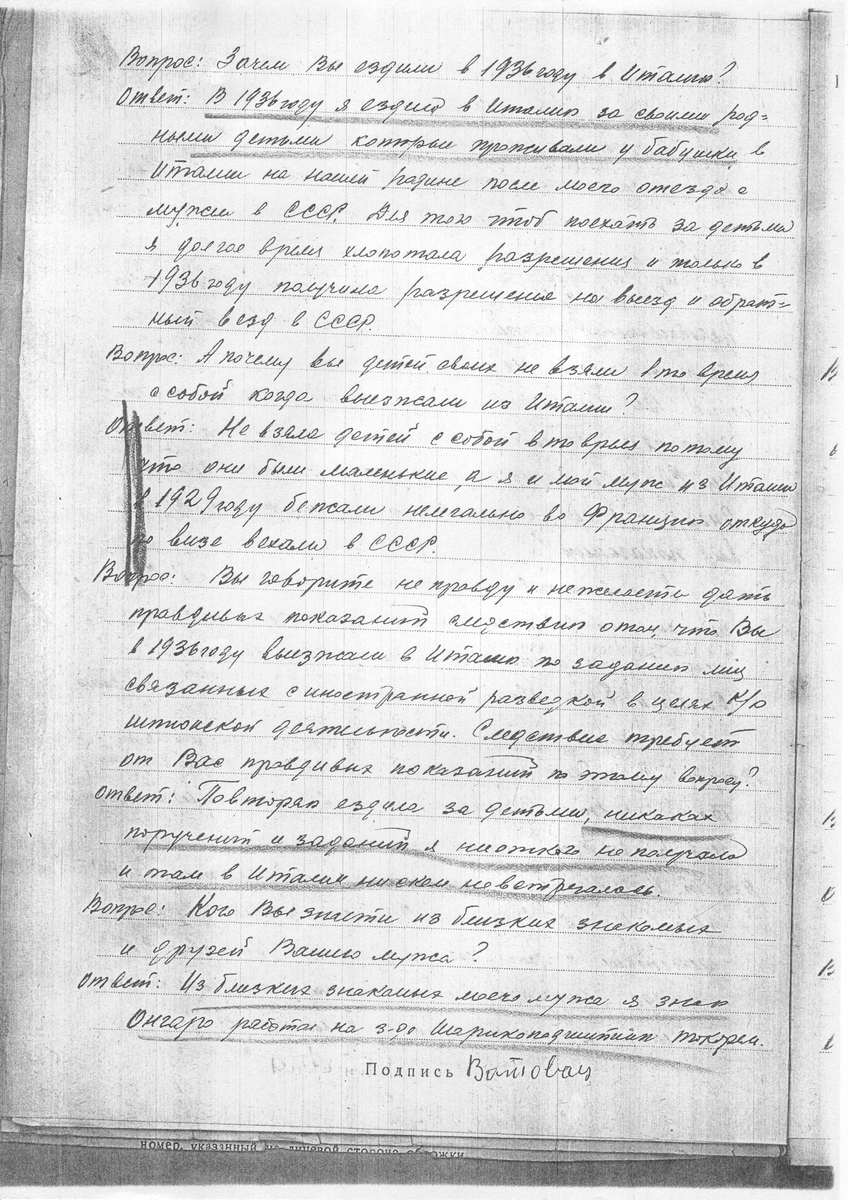 Вопрос: Зачем Вы ездили в 1936 году в Италию?
Ответ: В 1936 году я ездила в Италию за своими род=
ными детьми которые проживали у бабушки в
Италии на нашей родине после моего отезда с
мужем в СССР. Для того чтоб поехать за детьми
я долгое время хлопотала разрешения и только в
1936 году получила разрешение на выезд и обрат=
ный везд в СССР.
Вопрос: А почему вы детей своих не взяли в то время
с собой когда выезжали из Италии?
Ответ: Не взяла детей с собой в то время потому
что они были маленькие, а я и мой муж из Италии
в 1929 году бежали нелегально во Францию откуда
по визе вехали в СССР.
Вопрос: Вы говорите не правду и не желаете дать
правдивых показаний следствию о том, что Вы
в 1936 году выезжали в Италию по заданию лиц
связанных с иностранной разведкой в целях к/р
шпионской деятельности. Следствие требует
от Вас правдивых показаний по этому вопросу?
Ответ: Повторяю ездила за детьми, никаких
поручений и заданий я ниоткого не получала
и там в Италии нискем невстречалась.
Вопрос: Кого Вы знаете из близких знакомых
и друзей Вашего мужа?
Ответ: Из близких знакомых моего мужа я знаю
Онгаро работал на з-де Шарикоподшипник токарем.
Подпись
номер, указанный на лицевой стороне обложки